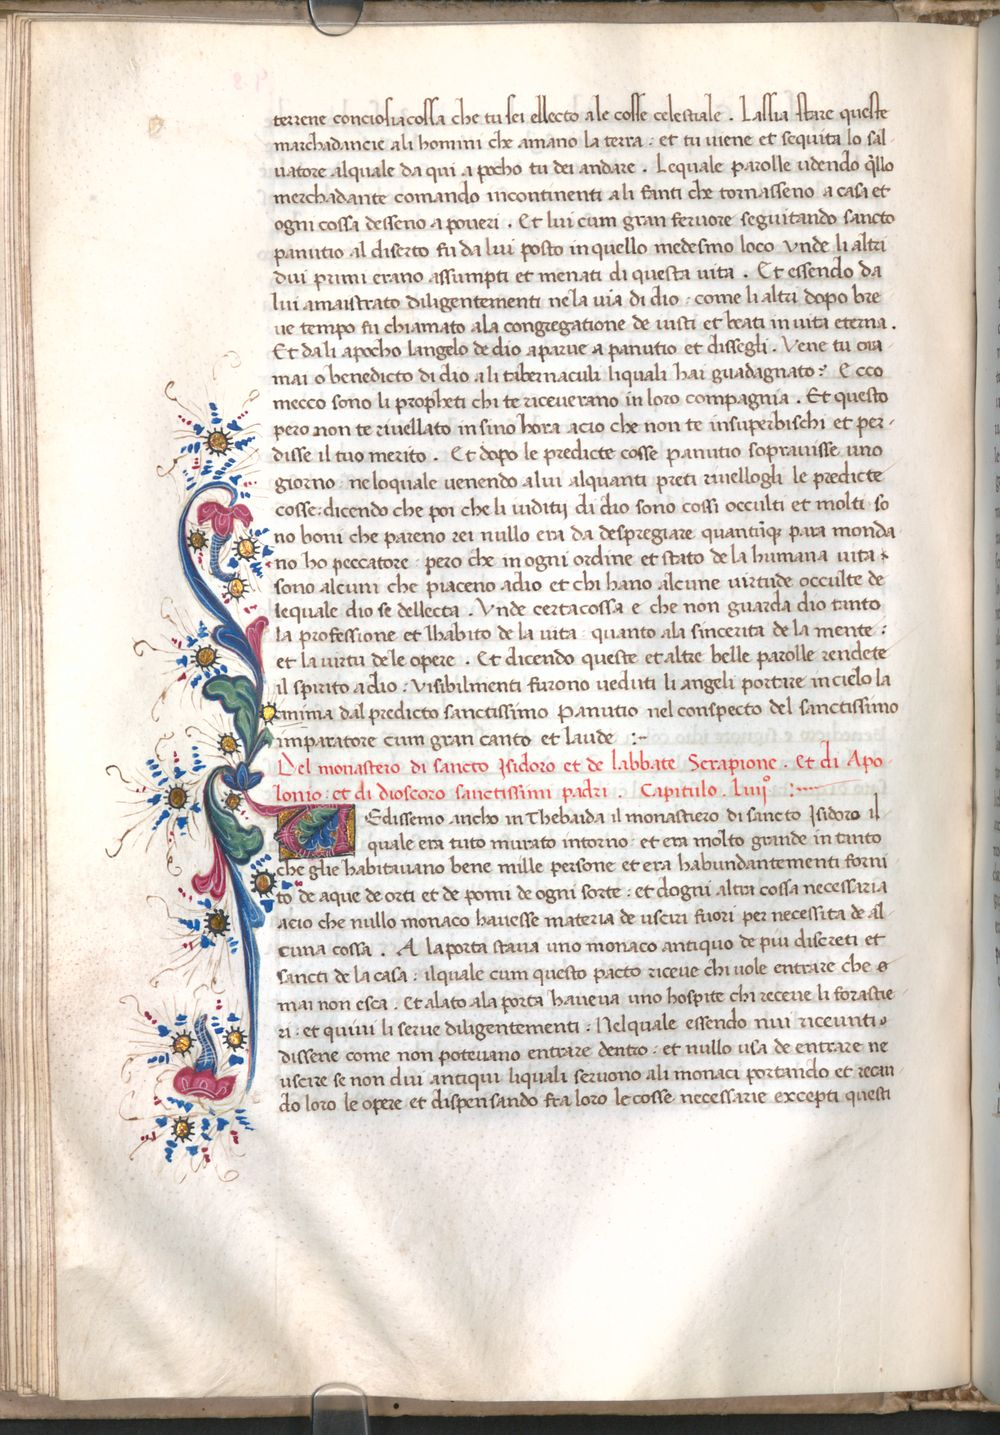 terrene conciosiacossa che tu sei ellecto a le cosse celestiale . Lassia stare queste
marchadancie a li homini che amano la terra : et tu viene et sequita lo sal-
uatore alquale da qui a pocho tu dei andare . Lequale parolle udendo q̃llo
merchadante comando incontinenti a li fanti che tornasseno a casa et
ogni cossa desseno a poueri . Et lui cum gran feruore seguitando sancto
panutio al diserto fu da lui posto in quello medesmo loco vnde li altri
dui primi erano assumpti et menati di questa vita . Et essendo da
lui amaistrato diligentementi ne la via di dio : come li altri dopo bre
ue tempo fu chiamato ala congregatione de iusti et beati in uita eterna .
Et da li apocho langelo de dio aparue a panutio et dissegli . Vene tu ora
mai o benedicto di dio a li tabernaculi liquali hai guadagnato : Ecco
mecco sono li propheti chi te riceuerano in loro compagnia . Et questo
pero non te riuellato in sino hora acio che non te insuperbischi et per-
disse il tuo merito . Et dopo le predicte cosse Panutio soprauisse uno
giorno : ne loquale venendo a lui alquanti preti riuellogli le predicte
cosse : dicendo che poi che li uiditij di dio sono cossi occulti et molti so
no boni che pareno rei nullo era da despregiare quantũq̃ para monda
no ho peccatore : pero che in ogni ordine et stato de la humana uita
sono alcuni che piaceno adio et chi hano alcune uirtude occulte de
lequale dio se dellecta . Vnde certa cossa e che non guarda dio tanto
la professione et lhabito de la uita : quanto ala sincerita de la mente :
et la uirtu dele opere . Et dicendo queste et altre belle parolle rendete
il spirito adio : Visibilmenti furono ueduti li angeli portare in cielo la
anima dal predicto sanctissimo Panutio nel conspecto del sanctissimo
imparatore cum gran canto et laude :-
Del monastero di sancto Isidoro et de labbate Serapione . Et di Apo-
lonio : et di dioscoro sanctissimi padri . Capitulo . Luij° :-
Edissemo ancho in Thebaida il monastiero di sancto Isidoro il
quale era tuto murato intorno : et era molto grande in tanto
che glie habitauano bene mille persone et era habundantementi forni
to de aque de orti et de pomi de ogni sorte : et dogni altra cossa necessaria
acio che nullo monaco hauesse materia de usciri fuori per necessita de al-
cuna cossa . A la porta staua uno monaco antiquo de piu discreti et
sancti de la casa : ilquale cum questo pacto riceue chi uole entrare che
mai non esca . Et alato ala porta haueua uno hospite chi receue li forastie
ri : et quiui li serue diligentementi : Nelquale essendo nui riceuuti
dissene come non poteuano entrare dentro : et nullo usa de entrare ne
uscire se non dui antiqui liquali seruono ali monaci portando et recan
do loro le opere et dispensando fra loro le cosse necessarie excepti questi